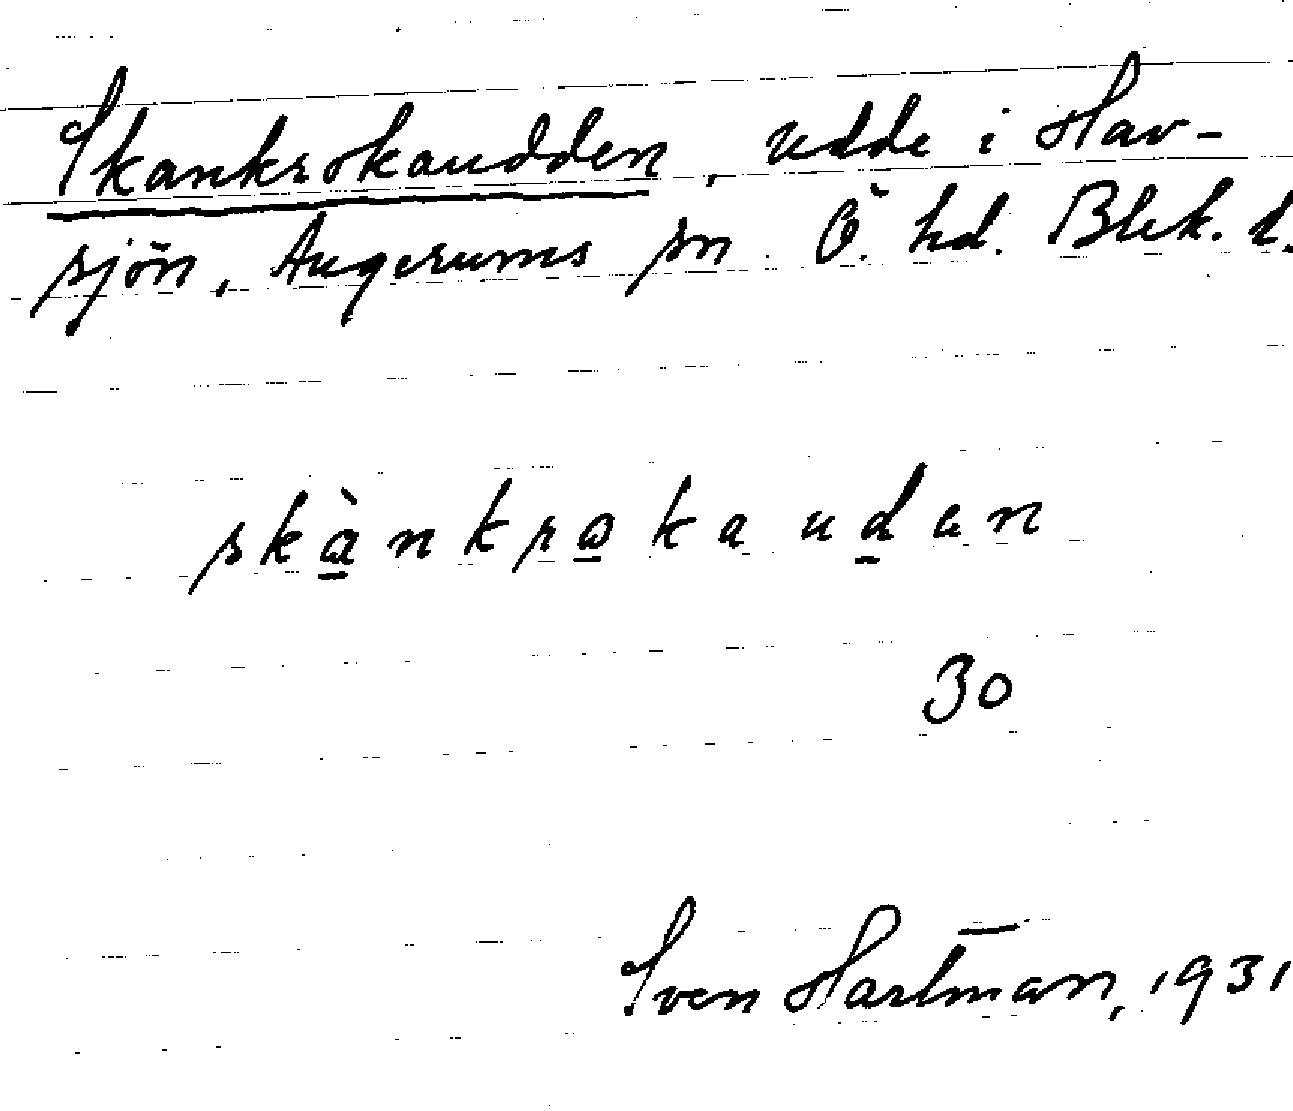 Skankrokaudden, udde i Hav-
sjön, Augerums sn. Ö. hd. Blek. l.
skànkrokaudan
30
Sven Hartman, 1931